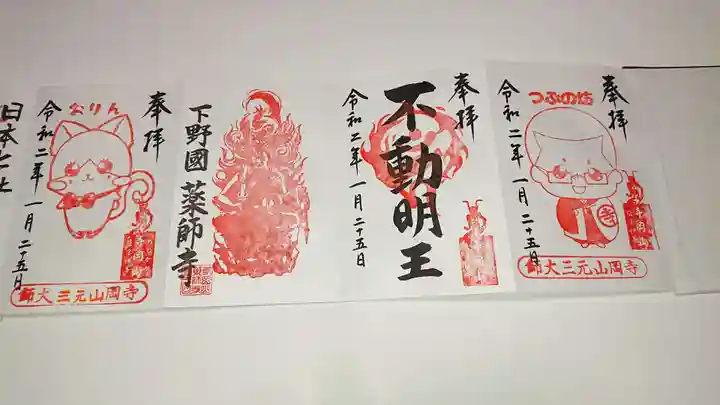 日本七社
おりん
奉拝
令和二年一月二十五日
寺岡山元三大師
下野國薬師寺
奉拝
不動明王
令和二年一月二十五日
つぶの坊
奉拝
令和二年一月二十五日
寺岡山元三大師